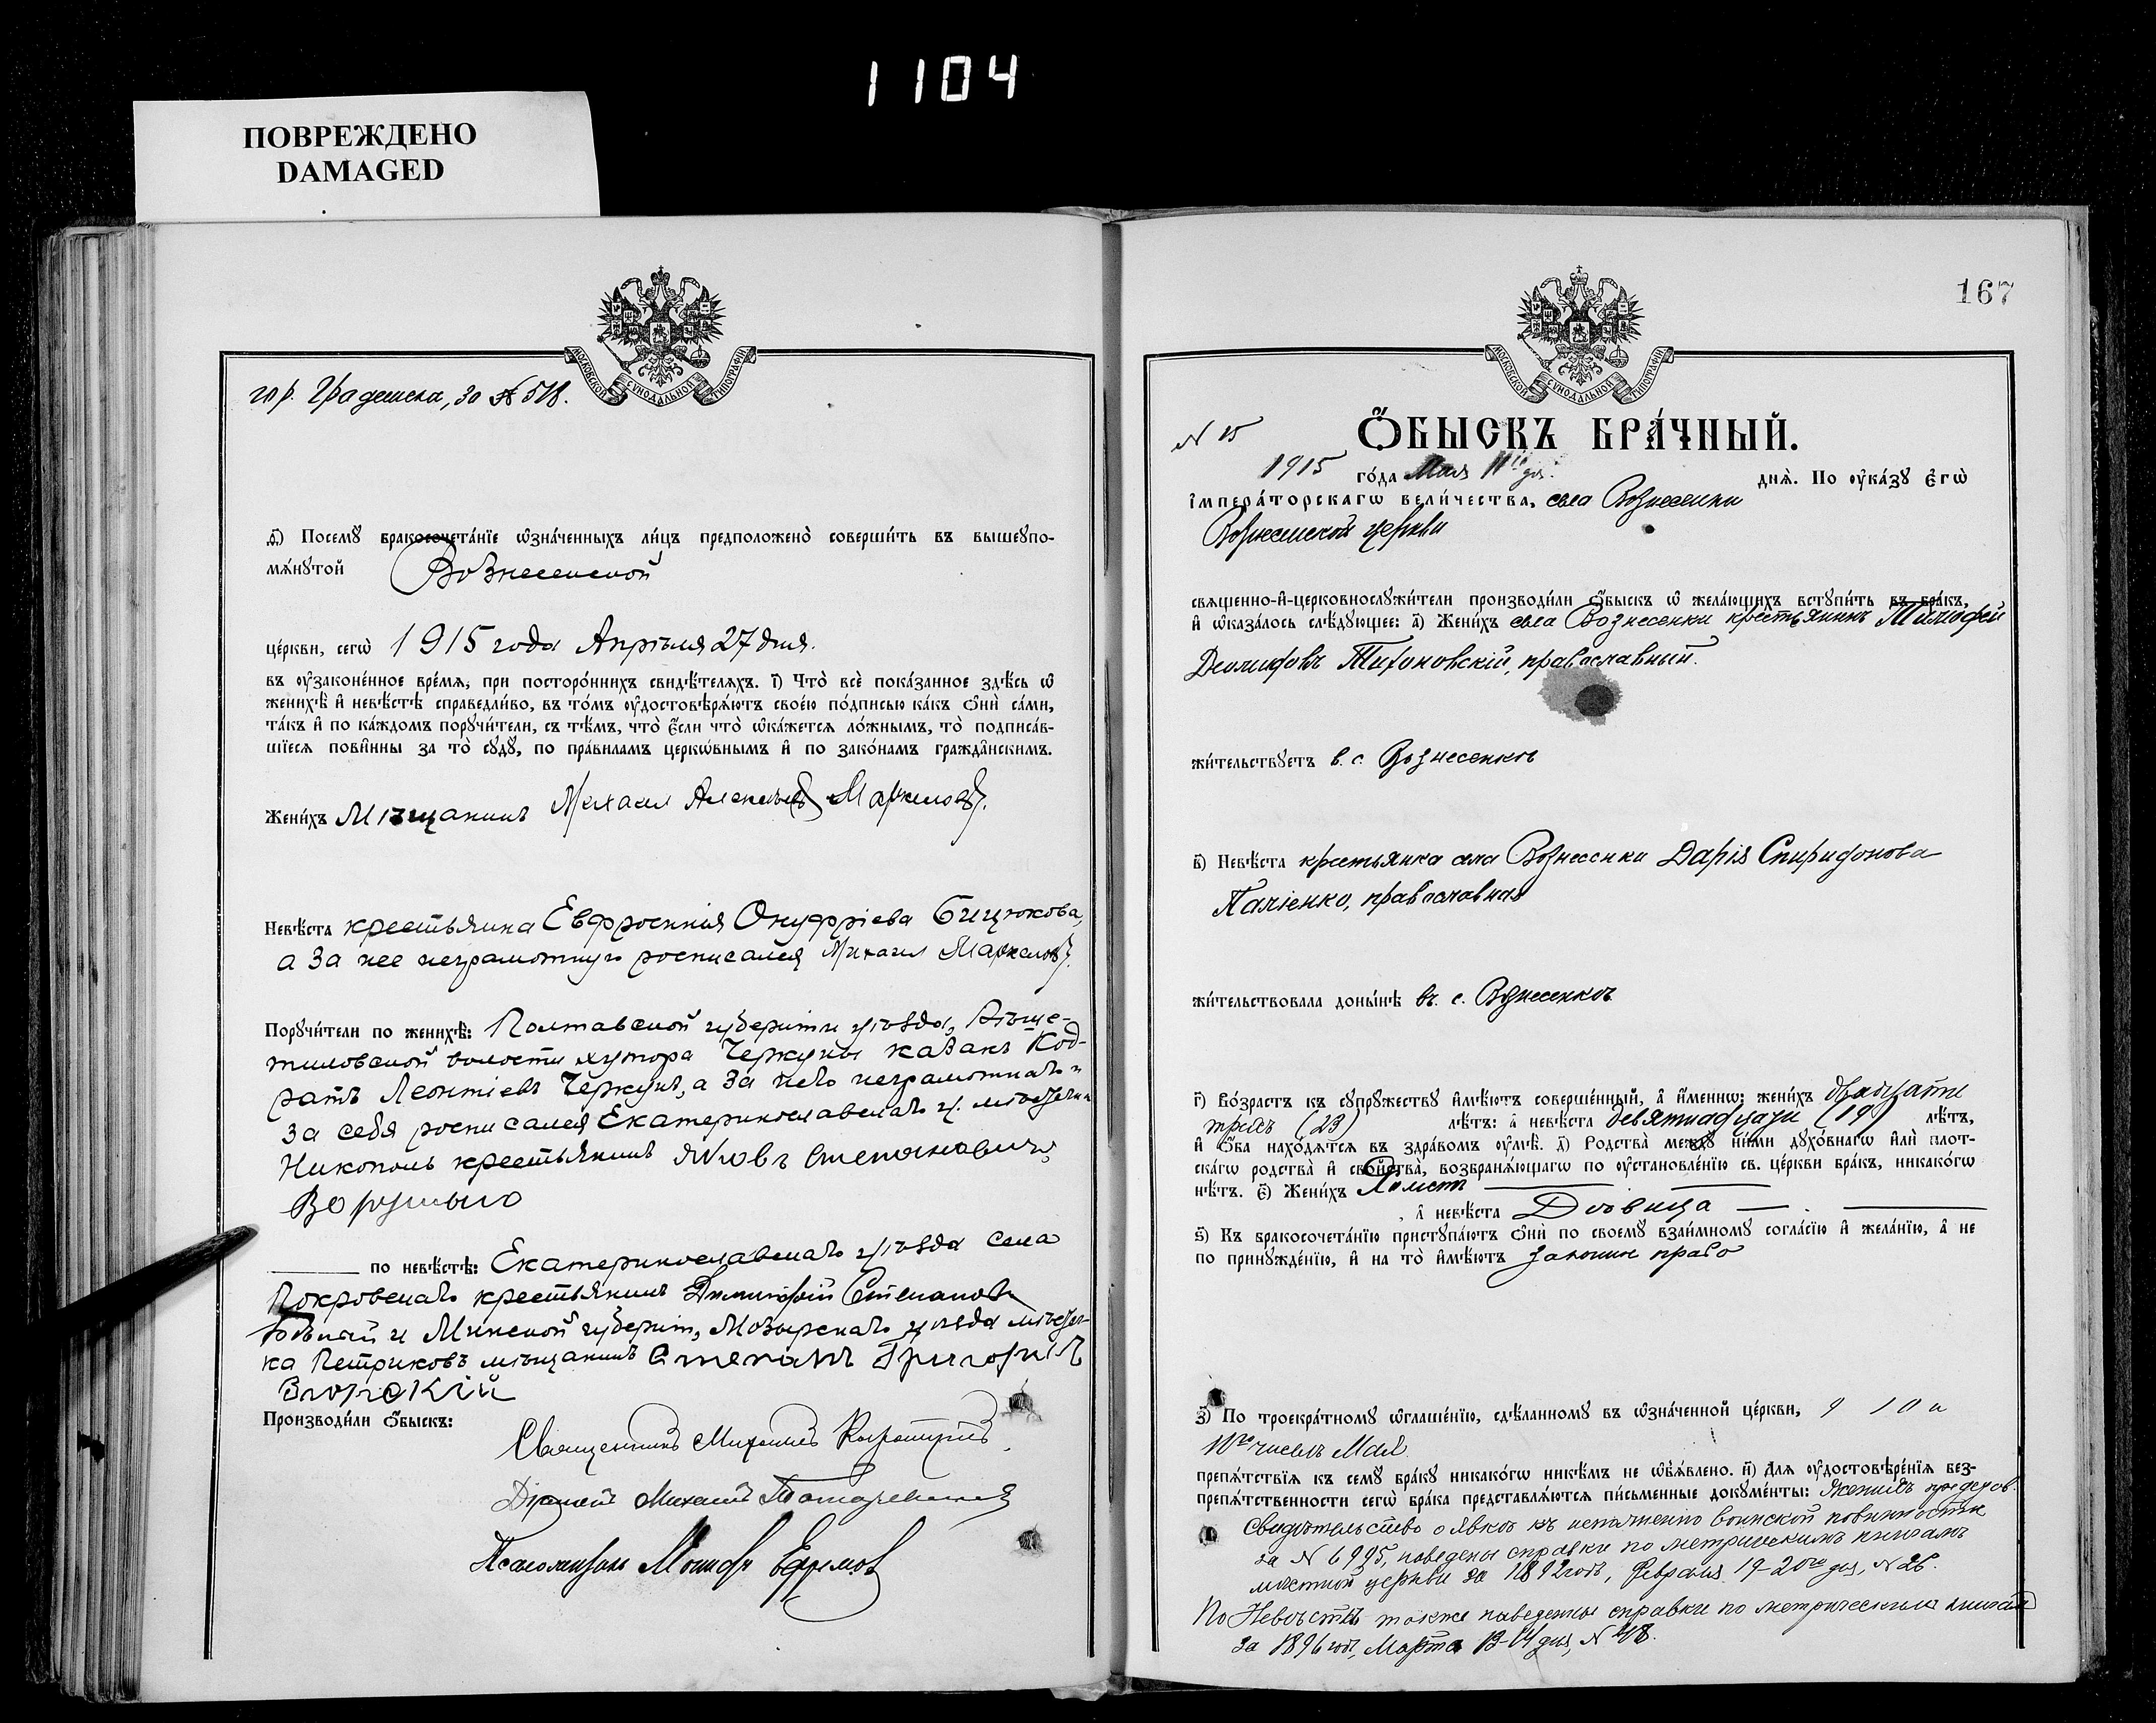 1104
ПОВРЕЖДЕНО
DAMAGED
МОСКОВСКОЙ СѴНОДАЛЬНОЙ ТИПОГРАФІИ
гор. Градижска, за № 518.
д҃) Посемꙋ бракосочета́нїе ѡ҆зна́ченныхъ ли́цъ предположено̀ соверши́ть въ вышеꙋпо-
мѧ́нꙋтой Вознесенской
це́ркви, сегѡ̀ 1915 года Апрѣля 27 дня.
въ ᲂу҆законе́нное вре́мѧ, при посторо́ннихъ свидѣ́телѧхъ. і҃) Что̀ всѐ пока́занное здѣ́сь ѡ҆
женихѣ̀ и҆ невѣ́стѣ справедли́во, въ то́мъ ᲂу҆достовѣрѧ́ютъ свое́ю по́дписью ка́къ ѻ҆нѝ са́ми,
та́къ и҆ по ка́ждомъ порꙋчи́тели, съ тѣ́мъ, что̀ є҆́сли что̀ ѡ҆ка́жетсѧ ло́жнымъ, то̀ подписа́в-
шїесѧ пови́нны за то̀ сꙋдꙋ̀, по пра́виламъ церкѡ́внымъ и҆ по зако́намъ гражда́нскимъ.
Жени́хъ Мѣщанинъ Михаил Алексѣевъ Маркеловъ.
Невѣ́ста крестьянка Евфросинія Онуфріева Бицюкова,
а за нее неграмотную росписался Михаил Маркеловъ.
Порꙋчи́тели по женихѣ̀: Полтавской губерніи уѣзда,
тиловской волости хутора Черкуны казакъ Код-
ратъ Леонтіевъ Черкунъ, а за него неграмотнаго
за себя росписался Екатеринославскаго у. мѣстечка
Никополь крестьянинъ Яковъ Степановичъ
Ворушыло
по невѣ́стѣ: Екатеринославскаго уѣзда села
Покровскаго крестьянинъ Димитрій Степановъ
и Минской губерніи, Мозырскаго уѣзда мѣстеч-
ка Петриковъ мѣщанинъ Степанъ Григорьевъ
Згорскій
Производи́ли ѻ҆́быскъ:
Священникъ Михаилъ
Діаконъ Михаилъ
Псаломщикъ Ефремов
167
МОСКОВСКОЙ СѴНОДАЛЬНОЙ ТИПОГРАФІИ
N 15
Ѻ҆́БЫСКЪ БРА́ЧНЫЙ.
1915 го́да Мая 11го дня. днѧ̀. По ᲂу҆ка́зꙋ є҆гѡ̀
і҆мпера́торскагѡ вели́чества, села Вознесенки
Вознесенской церкви
свѧщенно-и҆-церковнослꙋжи́тели производи́ли ѻ҆́быскъ ѡ҆ жела́ющихъ встꙋпи́ть въ бра́къ,
и҆ ѡ҆каза́лось слѣ́дꙋющее: а҃) Жени́хъ села Вознесенки крестьянинъ Тимофей
Тихоновскій, православный.
жи́тельствꙋетъ в. с. Вознесенкѣ
в҃) Невѣ́ста крестьянка села Вознесенки Дарія Спиридонова
Паліенко, православная
жи́тельствовала доны́нѣ въ. с. Вознесенкѣ
г҃) Во́зрастъ къ сꙋпрꙋ́жествꙋ и҆мѣ́ютъ соверше́нный, а҆ и҆́меннѡ: жени́хъ двадцати
трехъ (23) лѣ́тъ: а҆ невѣ́ста девятнадцати (19) лѣ́тъ,
и҆ ѻ҆́ба нахо́дѧтсѧ въ здра́вомъ ᲂу҆мѣ̀. д҃) Родства̀ междꙋ ни́ми дꙋхо́внагѡ и҆лѝ плот-
ска́гѡ родства̀ и҆ сво́йства, возбранѧ́ющагѡ по ᲂу҆становле́нїю св. це́ркви бра́къ, никако́гѡ
нѣ́тъ. є҃) Жени́хъ Холостъ
, а҆ невѣ́ста Дѣвица
ѕ҃) Къ бракосочета́нїю пристꙋпа́ютъ ѻ҆нѝ по своемꙋ̀ взаи́мномꙋ согла́сїю и҆ жела́нїю, а҆ не
по принꙋжде́нїю, и҆ на то̀ и҆мѣ́ютъ законное право
з҃) По троекра́тномꙋ ѡ҆глаше́нїю, сдѣ́ланномꙋ въ ѡ҆зна́ченной це́ркви, 9 10 и
11го чиселъ Мая
препѧ́тствїѧ къ семꙋ̀ бра́кꙋ никако́гѡ никѣ́мъ не ѡ҆бъѧ́влено. и҃) Длѧ ᲂу҆достовѣре́нїѧ без-
препѧ́тственности сегѡ̀ бра́ка представлѧ́ютсѧ пи́сьменные докꙋме́нты: Женихъ предъяв.
Свидѣтельство о явкѣ къ исполненію воинской повинности
за N 6995, наведены справки по метрическимъ книгамъ
мѣстной церкви за 1892 годъ, Февраля 19-20го дня, N 26.
По Невѣстѣ также наведены справки по метрическимъ книгамъ
за 1896 годъ, Марта 13-14 дня, N 48.